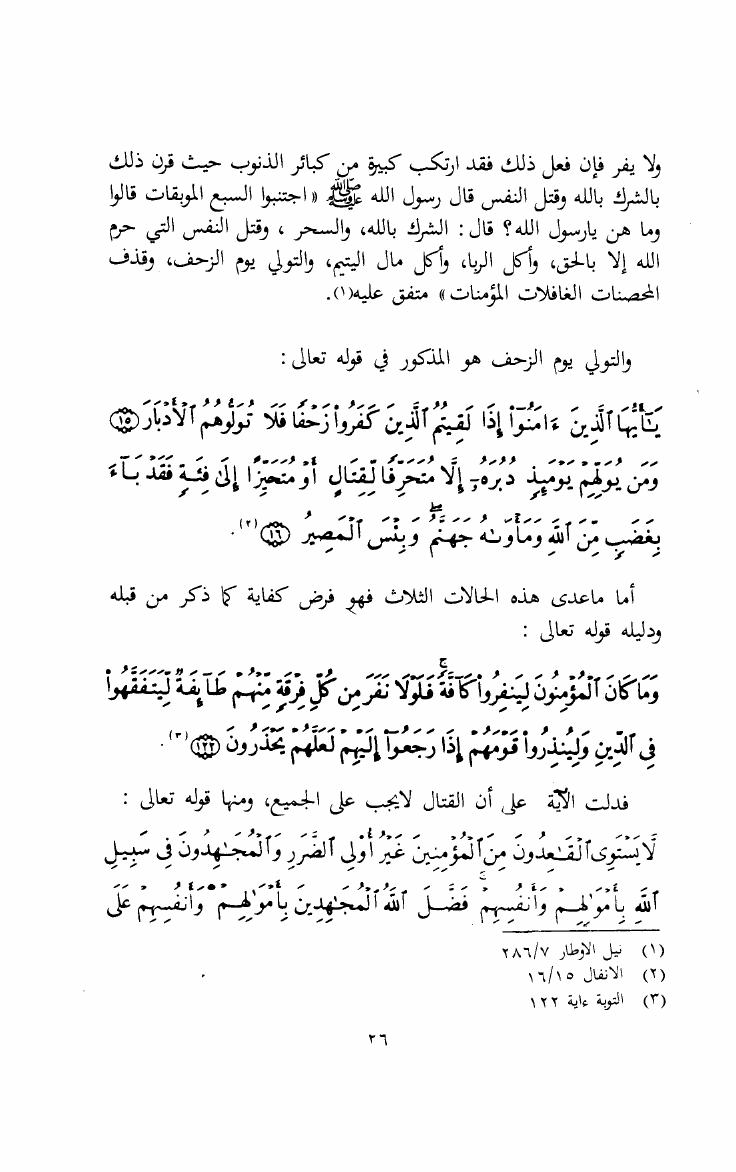 ولا يفر فإن فعل ذلك فقد ارتكب كبيرة من كبائر الذنوب حيث قرن ذلك
بالشرك بالله وقتل النفس قال رسول الله ﷺ « اجتنبوا السبع الموبقات قالوا
وما هن يارسول الله؟ قال : الشرك بالله، والسحر ، وقتل النفس التي حرم
الله إلا بالحق، وأكل الربا، وأكل مال اليتيم، والتولي يوم الزحف، وقذف
المحصنات الغافلات المؤمنات » متفق عليه(١).
والتولي يوم الزحف هو المذكور في قوله تعالى :
يَٰٓأَيُّهَا ٱلَّذِينَ ءَامَنُوٓا۟ إِذَا لَقِيتُمُ ٱلَّذِينَ كَفَرُوا۟ زَحْفًا فَلَا تُوَلُّوهُمُ ٱلْأَدْبَارَ ١٥
وَمَن يُوَلِّهِمْ يَوْمَئِذٍ دُبُرَهُۥٓ إِلَّا مُتَحَرِّفًا لِّقِتَالٍ أَوْ مُتَحَيِّزًا إِلَىٰ فِئَةٍ فَقَدْ بَآءَ
بِغَضَبٍ مِّنَ ٱللَّهِ وَمَأْوَىٰهُ جَهَنَّمُ ۖ وَبِئْسَ ٱلْمَصِيرُ ١٦ (٢).
أما ماعدى هذه الحالات الثلاث فهو فرض كفاية كما ذكر من قبله
ودليله قوله تعالى :
وَمَا كَانَ ٱلْمُؤْمِنُونَ لِيَنفِرُوا۟ كَآفَّةً ۚ فَلَوْلَا نَفَرَ مِن كُلِّ فِرْقَةٍ مِّنْهُمْ طَآئِفَةٌ لِّيَتَفَقَّهُوا۟
فِى ٱلدِّينِ وَلِيُنذِرُوا۟ قَوْمَهُمْ إِذَا رَجَعُوٓا۟ إِلَيْهِمْ لَعَلَّهُمْ يَحْذَرُونَ ١٢٢ (٣).
فدلت الآية على أن القتال لايجب على الجميع، ومنها قوله تعالى :
لَّا يَسْتَوِى ٱلْقَٰعِدُونَ مِنَ ٱلْمُؤْمِنِينَ غَيْرُ أُو۟لِى ٱلضَّرَرِ وَٱلْمُجَٰهِدُونَ فِى سَبِيلِ
ٱللَّهِ بِأَمْوَٰلِهِمْ وَأَنفُسِهِمْ ۚ فَضَّلَ ٱللَّهُ ٱلْمُجَٰهِدِينَ بِأَمْوَٰلِهِمْ وَأَنفُسِهِمْ عَلَى
(١) نيل الاوطار ٢٨٦/٧
(٢) الانفال ١٦/١٥
(٣) التوبة ءاية ١٢٢
٢٦